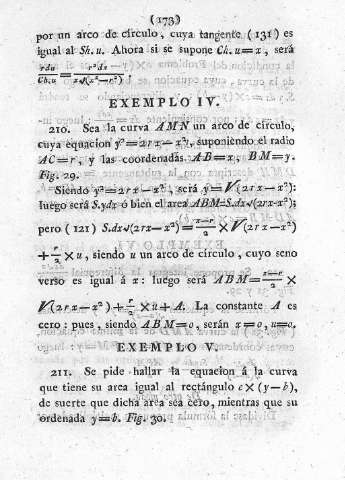 (173)
por un arco de círculo, cuya tangente (131) es
igual al Sh.u. Ahora si se supone Ch.u=x, será
rdu/Ch.u = r²dx/x√(x²−r²).
EXEMPLO IV.
210. Sea la curva AMN un arco de círculo,
cuya equacion y²=2rx−x², suponiendo el radio
AC=r, y las coordenadas AB=x, BM=y.
Fig. 29.
Siendo y²=2rx−x², será y=√(2rx−x²):
luego será S.ydx ó bien el area ABM=S.dx√(2rx−x²);
pero (121) S.dx√(2rx−x²)=x−r/2 × √(2rx−x²)
+r/2 × u, siendo u un arco de círculo, cuyo seno
verso es igual á x: luego será ABM=x−r/2 ×
√(2rx−x²)+r/2 ×u+A. La constante A es
cero: pues, siendo ABM=0, serán x=0, u=0.
EXEMPLO V.
211. Se pide hallar la equacion á la curva
que tiene su area igual al rectángulo c×(y−b),
de suerte que dicha area sea cero, mientras que su
ordenada y=b. Fig. 30.